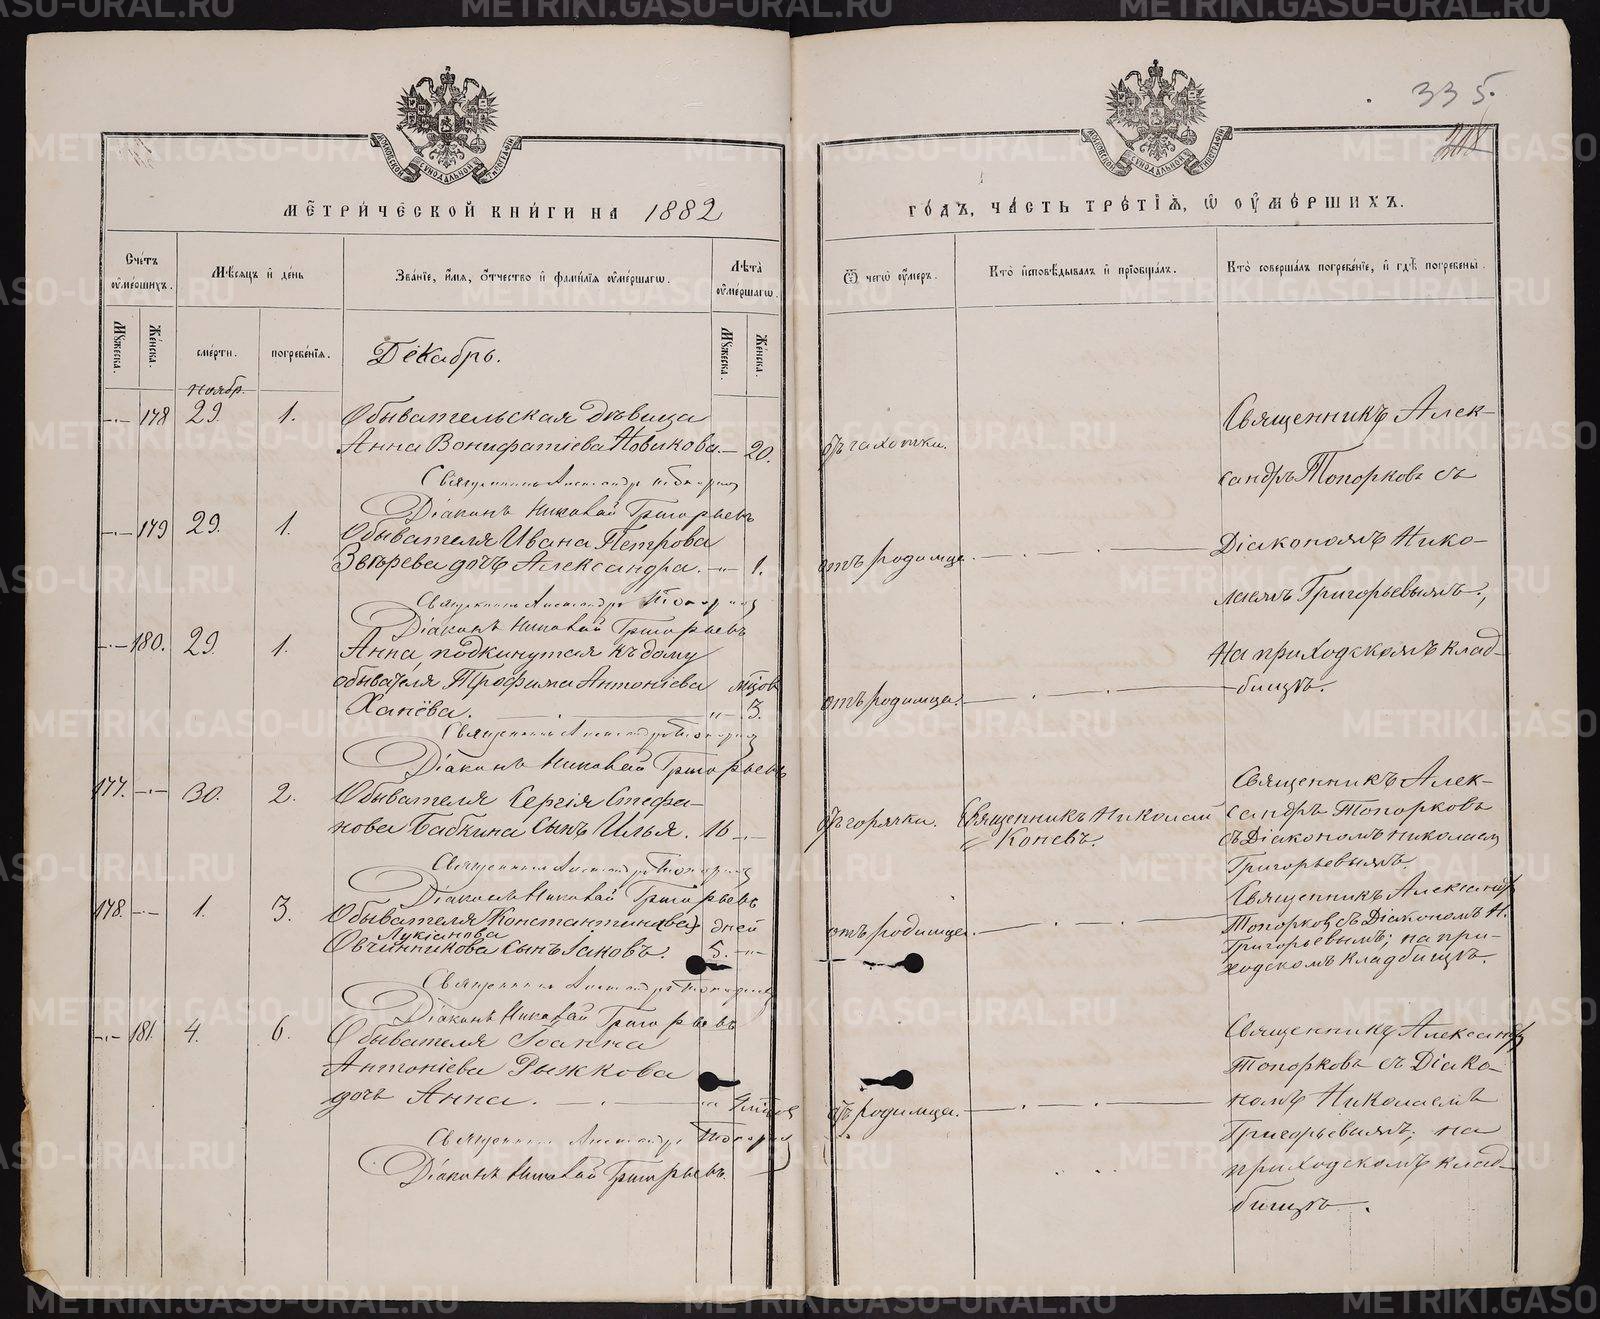 335.
208
МЕТРИЧЕСКОЙ КНИГИ НА 1882
ГОДЪ, ЧАСТЬ ТРЕТІЯ, Ѡ ОУМЕРШИХЪ.
Счетъ оумершихъ.
Мѣсяцъ и день
Званіе, имя, отчество и фамилія оумершагѡ.
Лѣта оумершагѡ.
Ѿ чегѡ оумеръ.
Кто исповѣдывалъ и пріобщалъ.
Кто совершалъ погребеніе, и гдѣ погребены.
Мужеска.
Женска.
смерти.
погребенія.
Декабрь.
Мужеска.
Женска.
ноябр.
178 29. 1. Обывательская дѣвица
Анна Вонифатіева Новикова.— 20.
отъ чахотки.
Священникъ Алек-
сандръ Топорковъ съ
Священникъ Александръ Топорковъ
Діаконъ Николай Григорьевъ
179 29. 1. Обывателя Ивана Петрова
Звѣрева дочь Александра. 1.
отъ родимца.
Діакономъ Нико-
лаемъ Григорьевымъ;
Священникъ Александръ Топорковъ
Діаконъ Николай Григорьевъ
180. 29. 1. Анна, подкинутая къ дому
обывателя Трофима Антоніева мѣсцов
Ханёва. 3.
отъ родимца.
На приходскомъ клад-
бищѣ.
Священникъ Александръ Топорковъ
Діаконъ Николай Григорьевъ
177. 30. 2. Обывателя Сергія Стефа-
нова Бабкина сынъ Илья. 16
отъ горячки.
Священникъ Николай
Коневъ.
Священникъ Алек-
сандръ Топорковъ
съ Діакономъ Николаем
Григорьевымъ.
Священникъ Александръ Топорковъ
Діаконъ Николай Григорьевъ
178. 1. 3. Обывателя Константина дней
Лукіанова
Овчинникова сынъ Іаковъ. 5.
отъ родимца.
Священникъ Александръ
Топорков съ Діакономъ Н.
Григорьевымъ; на при-
ходскомъ кладбищѣ.
Священникъ Александръ Топорковъ
Діаконъ Николай Григорьевъ
181. 4. 6. Обывателя Іоанна
Антоніева Рыжкова
дочь Анна.
отъ родимца.
Священникъ Александръ
Топорковъ съ Діако-
номъ Николаемъ
Григорьевымъ; на
приходскомъ клад-
бищѣ.
Священникъ Александръ Топорковъ
Діаконъ Николай Григорьевъ.
METRIKI.GASO-URAL.RU